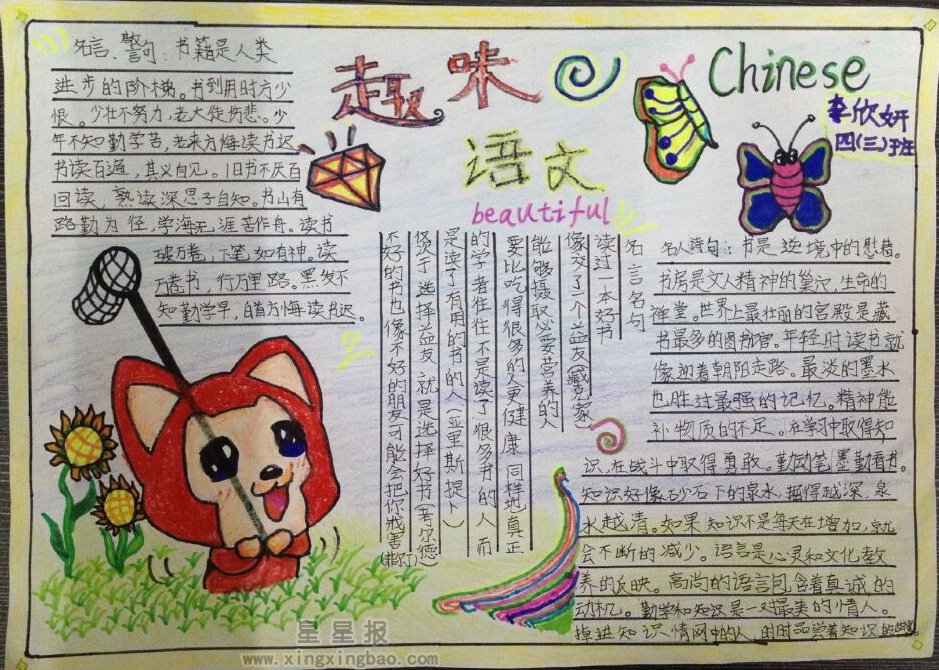 趣味
语文
beautiful
Chinese
李欣妍
四(三)班
名言、警句:书籍是人类
进步的阶梯。书到用时方少
恨。少壮不努力,老大徒伤悲。少
年不知勤学苦,老来方悔读书迟
书读百遍,其义自见。旧书不厌百
回读,熟读深思子自知。书山有
路勤为径,学海无涯苦作舟。读书
破万卷,下笔如有神。读
万卷书,行万里路。黑发不
知勤学早,白首方悔读书迟。
名言名句
读过一本好书
像交了一个益友(臧克家
能够摄取必要营养的人
要比吃得很多的人更健康同样地真正
的学者往往不是读了很多书的人而
是读了有用的书的人(亚里斯提卜)
选择益友就是选择好书
不好的书也像不好的朋友可能会把你戕害
名人诗句:书是逆境中的慰藉。
书房是文人精神的巢穴,生命的
禅堂。世界上最壮丽的宫殿是藏
书最多的图书馆。年轻时读书就
像迎着朝阳走路。最淡的墨水
也胜过最强的记忆。精神能
补物质的不足。在学习中取得知
识,在战斗中取得勇敢。勤动笔墨勤看书。
知识好像石少石下的泉水,掘得越深,泉
水越清。如果知识不是每天在增加,就
会不断的减少。语言是心灵和文化教
养的反映。高尚的语言包含着真诚的
动机。勤学和知识是一对最美的情人。
掉进知识情网中的人,时时品尝着知识的
星星报
www.xingxingbao.com